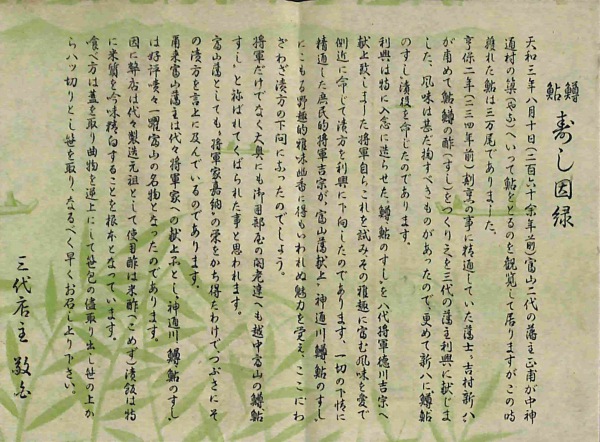 鱒
鮎
寿し因縁
天和三年八月十日(二百六十余年前)富山二代の藩主正甫が中神
通村の簗(やな)へいって鮎をとるのを観覧して居りますがこの時
獲れた鮎は三万尾でありました。
享保二年(二三四年前)割烹の事に精通していた藩士吉村新八
が甫めて鮎鱒の酢(すし)をつくり之を三代の藩主利興に献じま
した、風味は甚だ掬すべきものがあったので更めて新八に鱒鮎
のすし漬役を命じたのであります。
利興は特に入念に造らせた鱒鮎のすしを八代将軍徳川吉宗へ
献上致しました将軍自らこれを試みその雅趣に富む風味を愛で
側近に命じて漬方を利興に下問したのであります、一切の下情に
精通した庶民的将軍吉宗が富山藩献上神通川鱒鮎のすし
にこもる野趣的雅味幽香に得もいわれぬ魅力を覚え、ここにわ
ざわざ漬方の下問にふったのでしょう。
将軍だけでなく大奥にも御用部屋の閣老達へも越中富山の鱒鮎
すしと祢ばれてくばられた事と思われます。
富山藩としても将軍家嘉納の栄をかち得たわけでつぶさにそ
の漬方を言上に及んでいるのであります。
爾来富山藩主は代々将軍家への献上品とし神通川鱒鮎のすし
は好評嘖々一躍富山の名物となったのであります。
因に弊店は代々製造元祖として使用酢は米酢(こめず)漬飯は特
に米質を吟味精白することを根本となっています。
食べ方は蓋を取り曲物を逆上にして笹包の儘取り出し笹の上か
ら八ツ切りとし笹を取り、なるべく早くお召し上り下さい。
三代店主 敬白